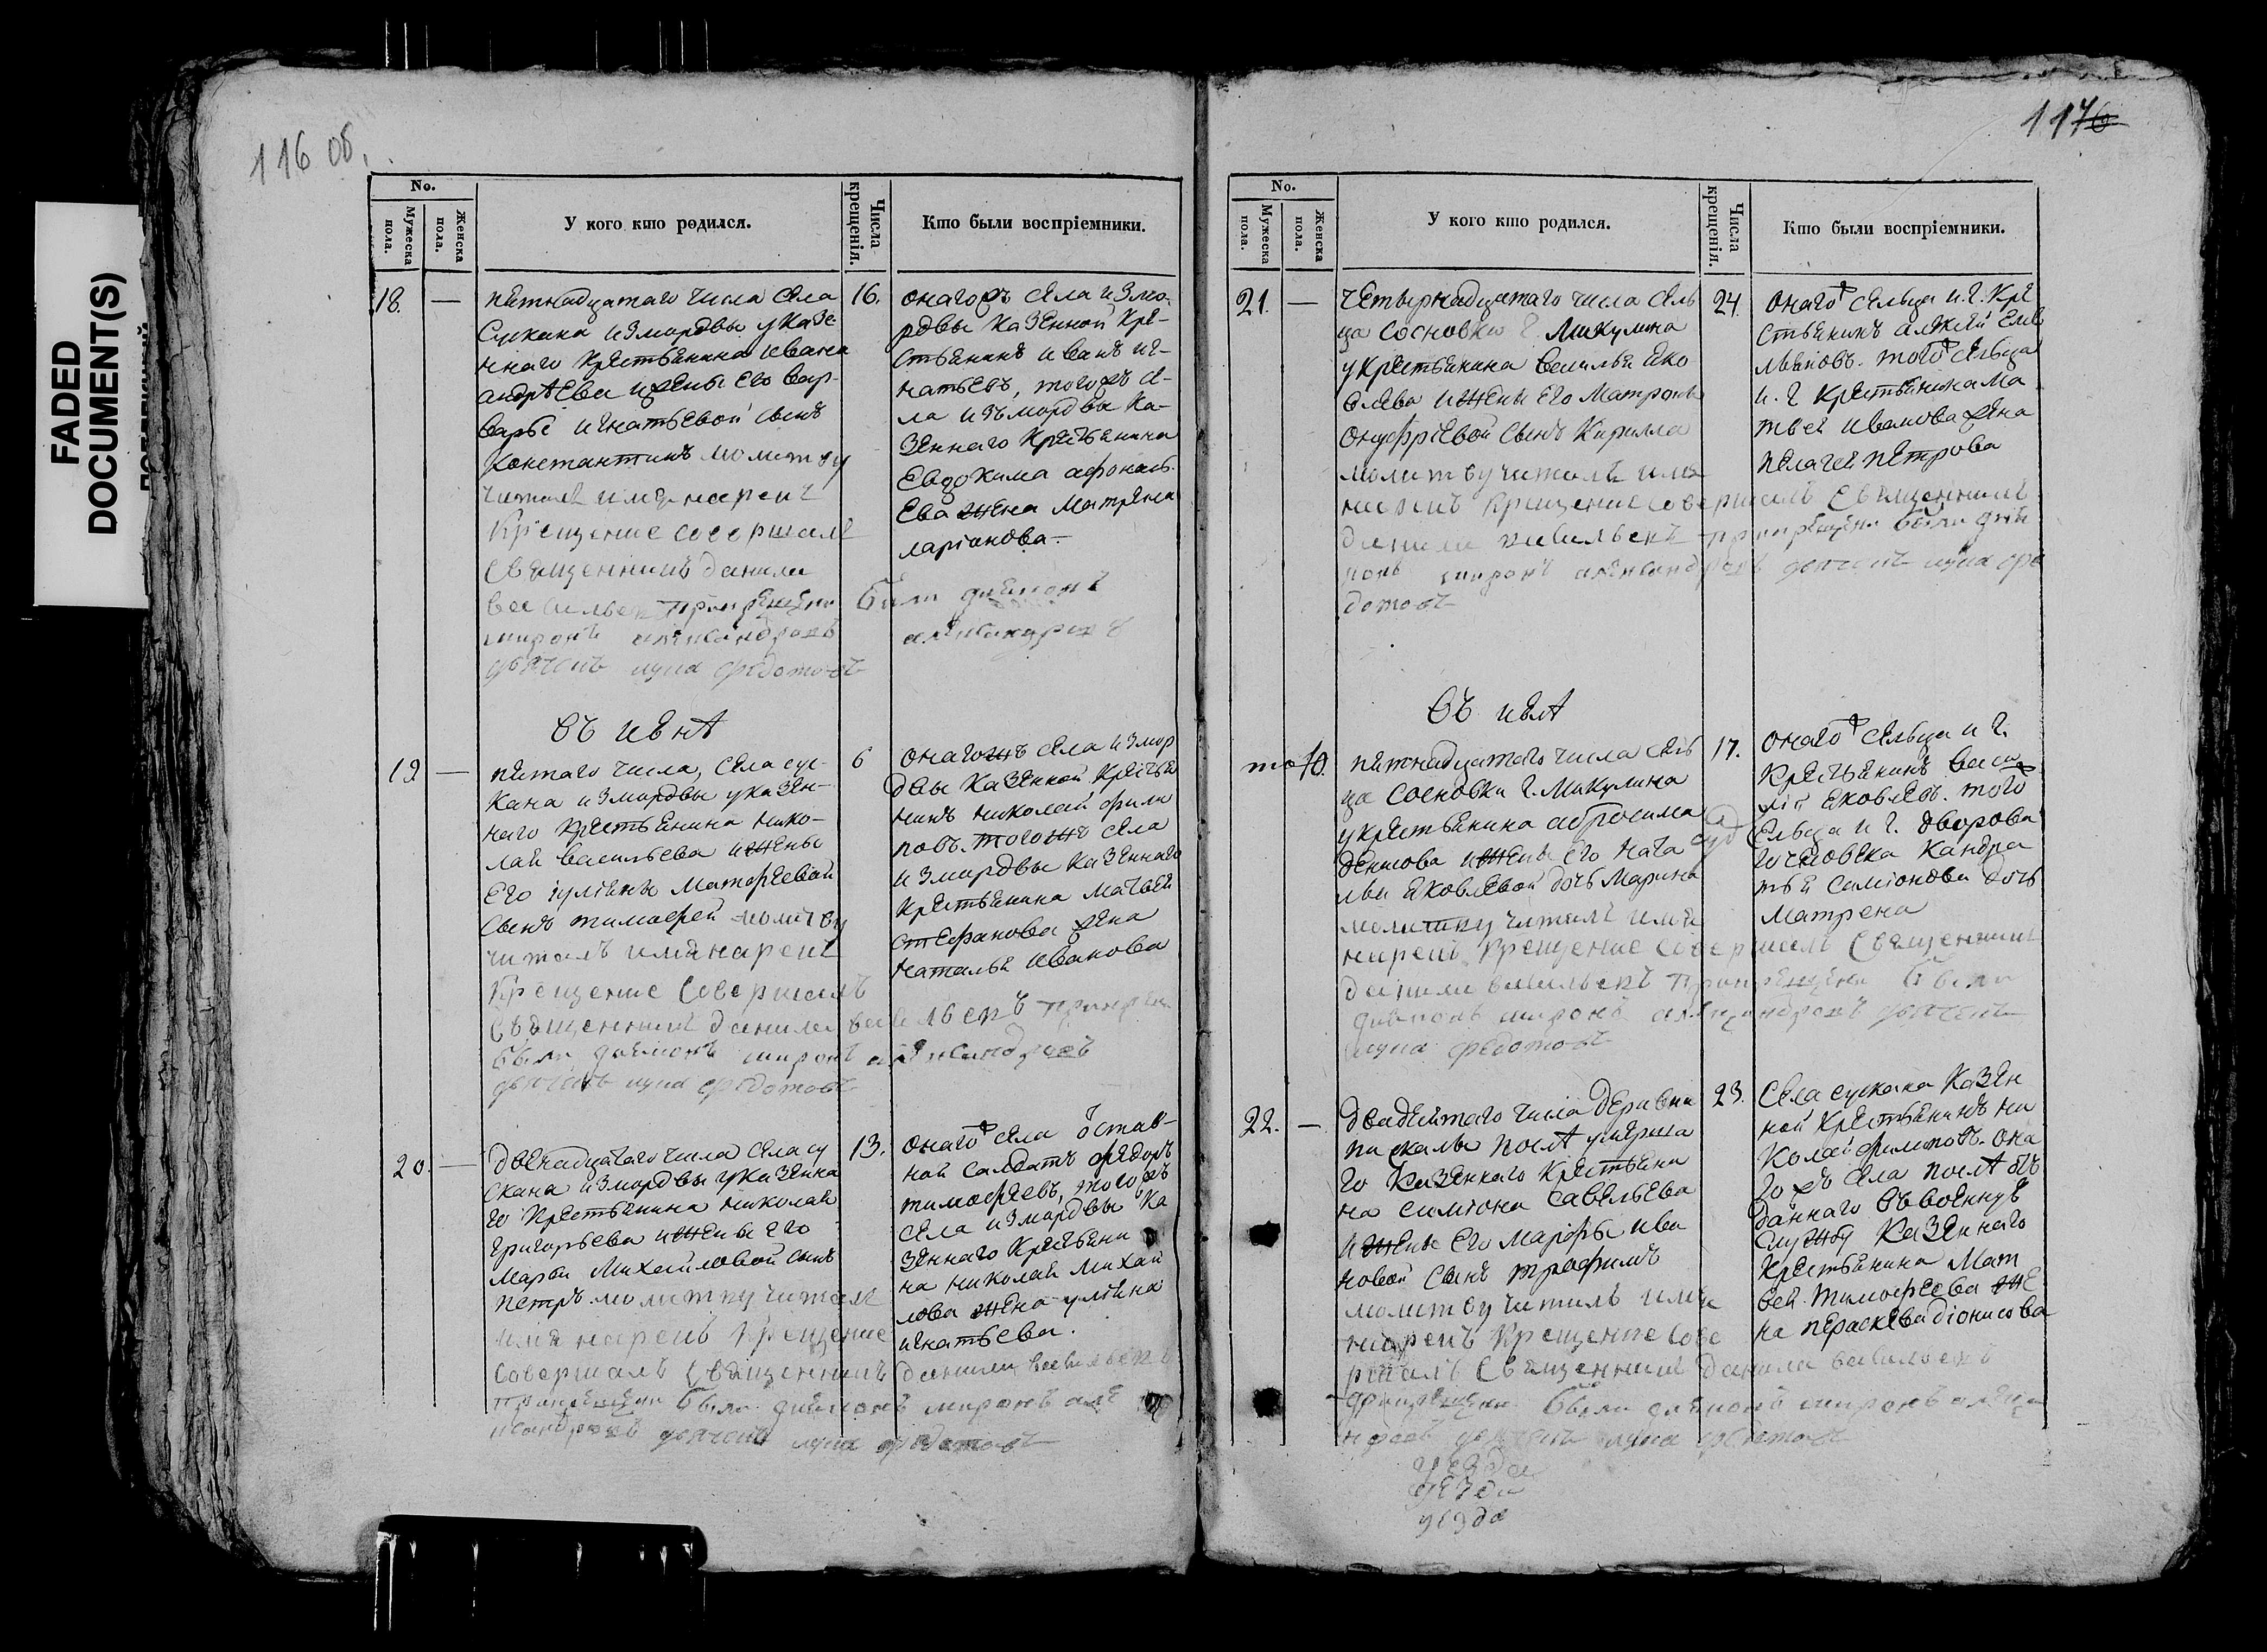 FADED
DOCUMENT(S)
116 об.
No.
Мужеска пола.
Женска пола.
У кого кто родился.
Числа крещенія.
Кто были воспріемники.
18. —
пятнадцатаго числа села
Сускана измордвы у казе
ннаго крестьянина ивана
андрѣева ижены его вар-
вары игнатьевой сынъ
Константинъ молитву
читалъ имя нареч
Крещение совершалъ
Священникъ данила
васильевъ прикрещени были диаконъ
миронъ александровъ
дьячекъ лука федотовъ
16.
онагожъ села измо-
рдвы казенной кре-
стьянинъ иванъ иг-
натьевъ, тогожъ се-
ла изъ мордвы ка-
зеннаго крестьянина
Евдокима афонась-
ева жена матрена
ларіонова.
въ іюнѣ
19 —
пятаго числа, села сус-
кана измордвы у казен-
наго крестьянина нико-
лая васильева ижены
его іуліяны матфеевой
сынъ тимофей молитву
читалъ имя нарекъ
Крещение Совершалъ
Священникъ данила васильевъ прикрещ
были диаконъ миронъ александровъ
дьячекъ лука федотовъ
6
онагожъ села измор
двы казенной крестья
нинъ николай фили
повъ. тогожъ села
измордвы казеннаго
крестьянина матвея
стефанова жена
наталья иванова
20. —
двенадцатаго числа села су
скана измордвы у казенна
го крестьянина николая
григорьева ижены его
марьи михайловой сынъ
петръ. молитву читалъ
имя нарекъ Крещение
совершалъ Священникъ данила васильевъ
прикрещени были диаконъ миронъ але
ксандровъ дьячекъ лука федотовъ
13.
онагожъ села отстав-
ной салдатъ федоръ
тимофеевъ, тогожъ
села измордвы ка
зеннаго крестьяни
на николая михай
лова жена улияна
игнатьева.
117
No.
Мужеска пола.
Женска пола.
У кого кто родился.
Числа крещенія.
Кто были воспріемники.
21. —
четырнадцатаго числа сель
ца сосновки г. Микулина
у крестьянина василья яко
влева ижены его матроны
онуфріевой сынъ Кирилла
молитву читалъ имя
нарекъ Крещение совершалъ Священникъ
данила васильевъ прикрещени были диа
конъ миронъ александровъ дьячекъ лука фе
дотовъ
24.
онагожъ сельца и. г. кре
стьянинъ алексей еме
льяновъ. тогожъ сельца
и. г крестьянина ма
твея иванова жена
пелагея петрова
въ іюлѣ
10.
пятнадцатаго числа сель
ца сосновки г. Микулина
у крестьянина абросима
денисова ижены его ната
льи яковлевой дочь Марина
молитву читалъ имя
нарекъ Крещение совершалъ Священникъ
данила васильевъ прикрещени были
диаконъ миронъ александровъ дьячекъ
лука федотовъ
17.
онагожъ сельца и г.
крестьянинъ васи
лій яковлевъ. того
сельца и г. дворова
го человека кандра
тья симіонова дочь
матрена
22. —
двадцатаго числа деревни
пискалы послѣ умерша
го казеннаго крестьяни
на симіона савельева
ижены его марфы ива
новой сынъ трофимъ
молитву читалъ имя
нарекъ Крещение сове
ршалъ Священникъ данила васильевъ
прикрещени были диаконъ миронъ алекса
ндровъ дьячекъ лука федотовъ
23.
села сускана казен
ной крестьянинъ ни
колай филиповъ. она
гожъ села послѣ от
даннаго въ военную
службу казеннаго
крестьянина мат
вея тимофеева же
на параскева діонисова
уезда
уезда
уезда